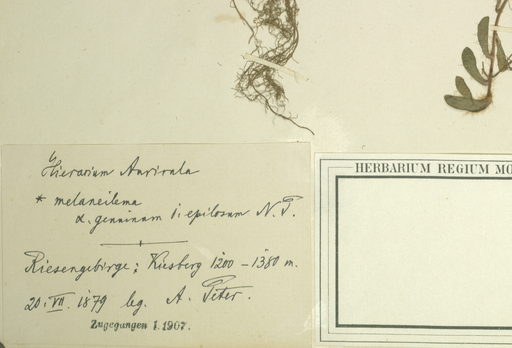 Hieracium Auricula
* melaneilema
α. genuinum 1. epilosum N. P.
Riesengebirge; Kiesberg 1200 – 1380 m.
20. VII. 1879 leg. A. Peter.
Zugegangen I. 1907.
HERBARIUM REGIUM MO